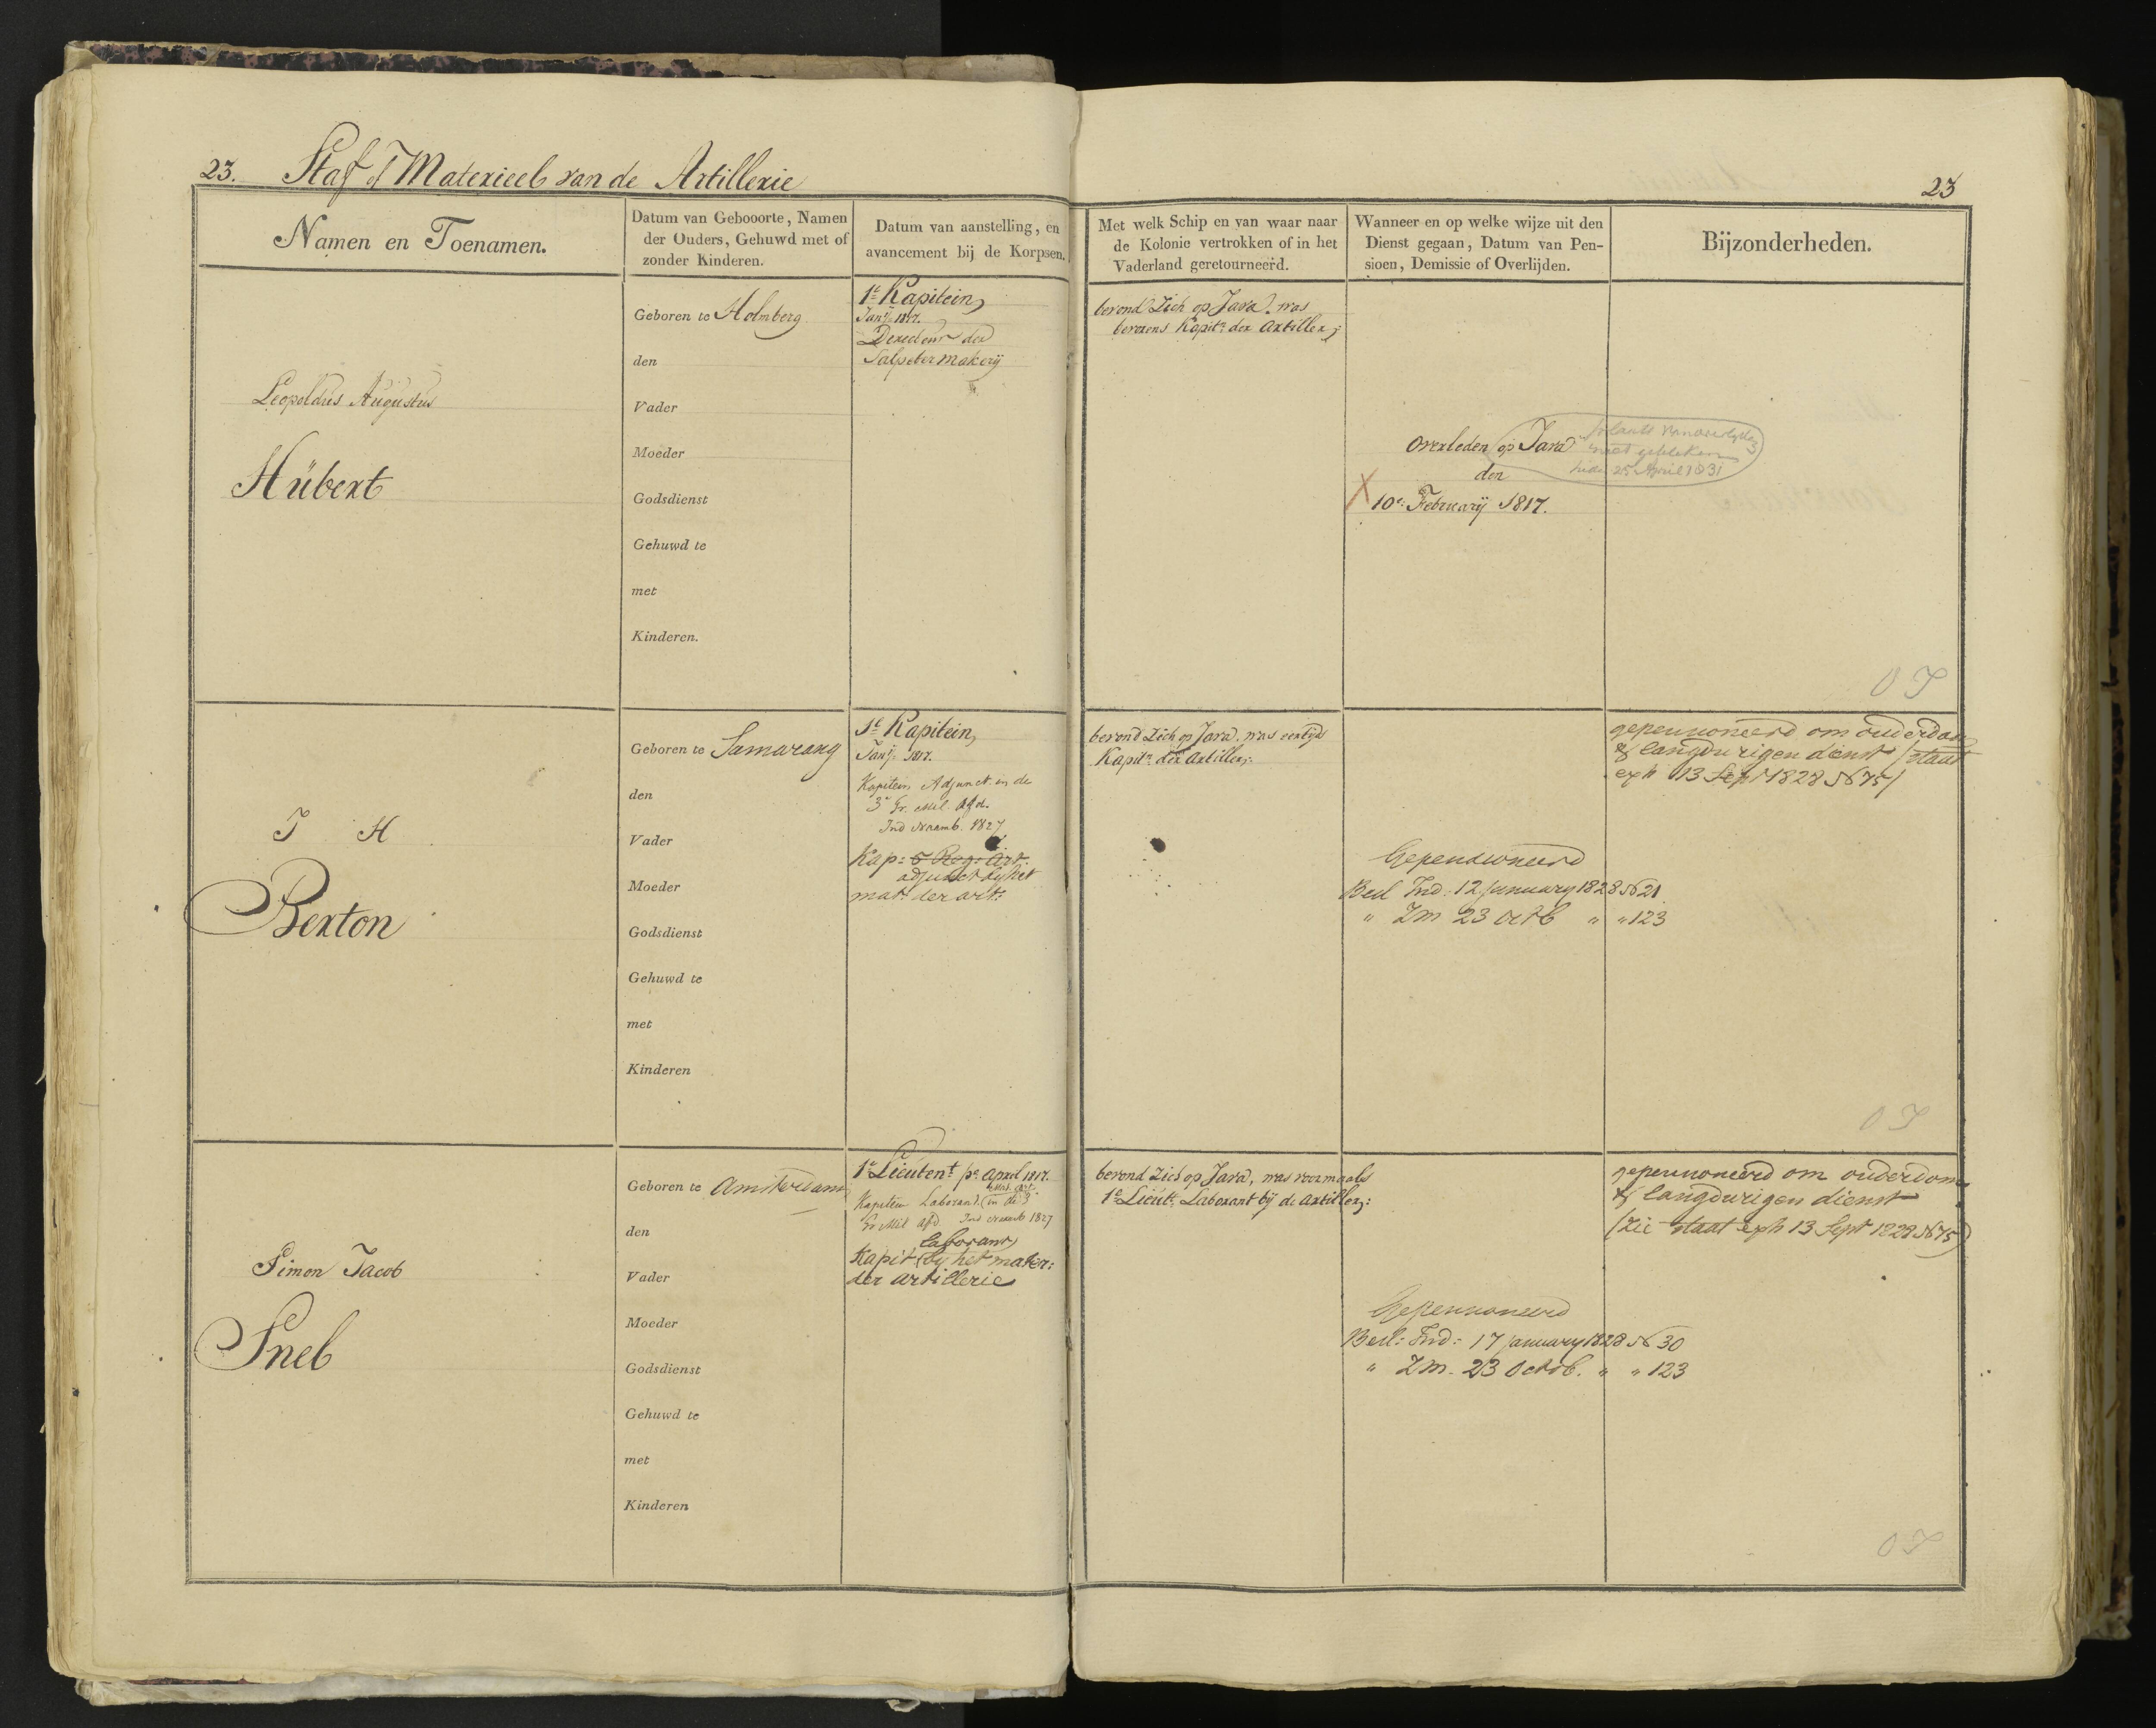 23. Staf of Materieel van de Artillerie
23
Namen en Toenamen.
Datum van Gebooorte, Namen
der Ouders, Gehuwd met of
zonder Kinderen.
Datum van aanstelling, en
avancement bij de Korpsen.
Met welk Schip en van waar naar
de Kolonie vertrokken of in het
Vaderland geretourneerd.
Wanneer en op welke wijze uit den
Dienst gegaan, Datum van Pen-
sioen, Demissie of Overlijden.
Bijzonderheden.
Leopoldus Augustus
Hübert
Geboren te Holmberg
den
Vader
Moeder
Godsdienst
Gehuwd te
met
Kinderen.
1e Kapitein,
Janij 1817.
Derecteur der
Salpetermakerij
bevond Zich op Java. was
bevorens Kapitn der Artiller;:
Overleden op Java
den
X 10e: Februarij 1817.
plaats van overlijden
niet gebleken
25 April 1831
O I
J H
Berton
Geboren te Samarang
den
Vader
Moeder
Godsdienst
Gehuwd te
met
Kinderen
1e Kapitein,
Janij 1817.
Kapitein Adjunct in de
3e Gr. Mil. Afd.
Ind Naamb. 1827
Kap: 5 Reg: Art:
adjunct bij het
matr der art:
bevond Zich op Java. was eertijds
Kapitn der Artiller;:
Gepensioneerd
Besl Ind: 12 january 1828 No 21.
" Zm 23 octb " " 123
gepensioneerd om ouderdom
& langdurigen dienst / staat
exh 13 Sept 1828 No 75/
O I
Simon Jacob
Sneb
Geboren te Amsterdam
den
Vader
Moeder
Godsdienst
Gehuwd te
met
Kinderen
1e Lieutent pe April 1817.
Mat. Art.
Kapitein Laborant (in de 3e
Gr Mil Afd Ind Naamb 1827
laborant
Kapit (bij het mater:
der artillerie
bevond Zich op Java, was voormaals
1e Lieutt Laborant bij de Artiller;:
Gepensioneerd
Besl: Ind: 17 january 1828 No 30
" Zm. 23 Octob. " " 123
gepensioneerd om ouderdom
& langdurigen dienst
(Zie staat exh 13 Sept 1828 No 75)
O I